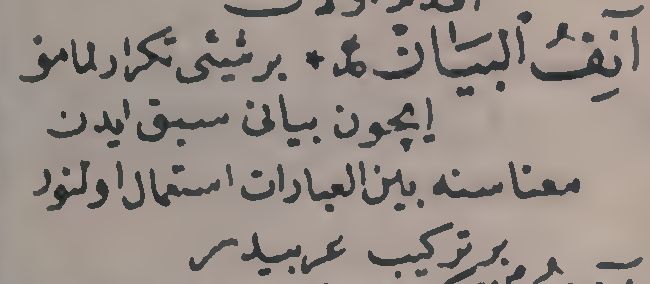 آنِفُ ٱلبَيَان * برشیئی تكرارلمامق
ایچون بیانی سبق ایدن
معناسنه بین العبارات استعمال اولنور
بر تركیب عربیدر